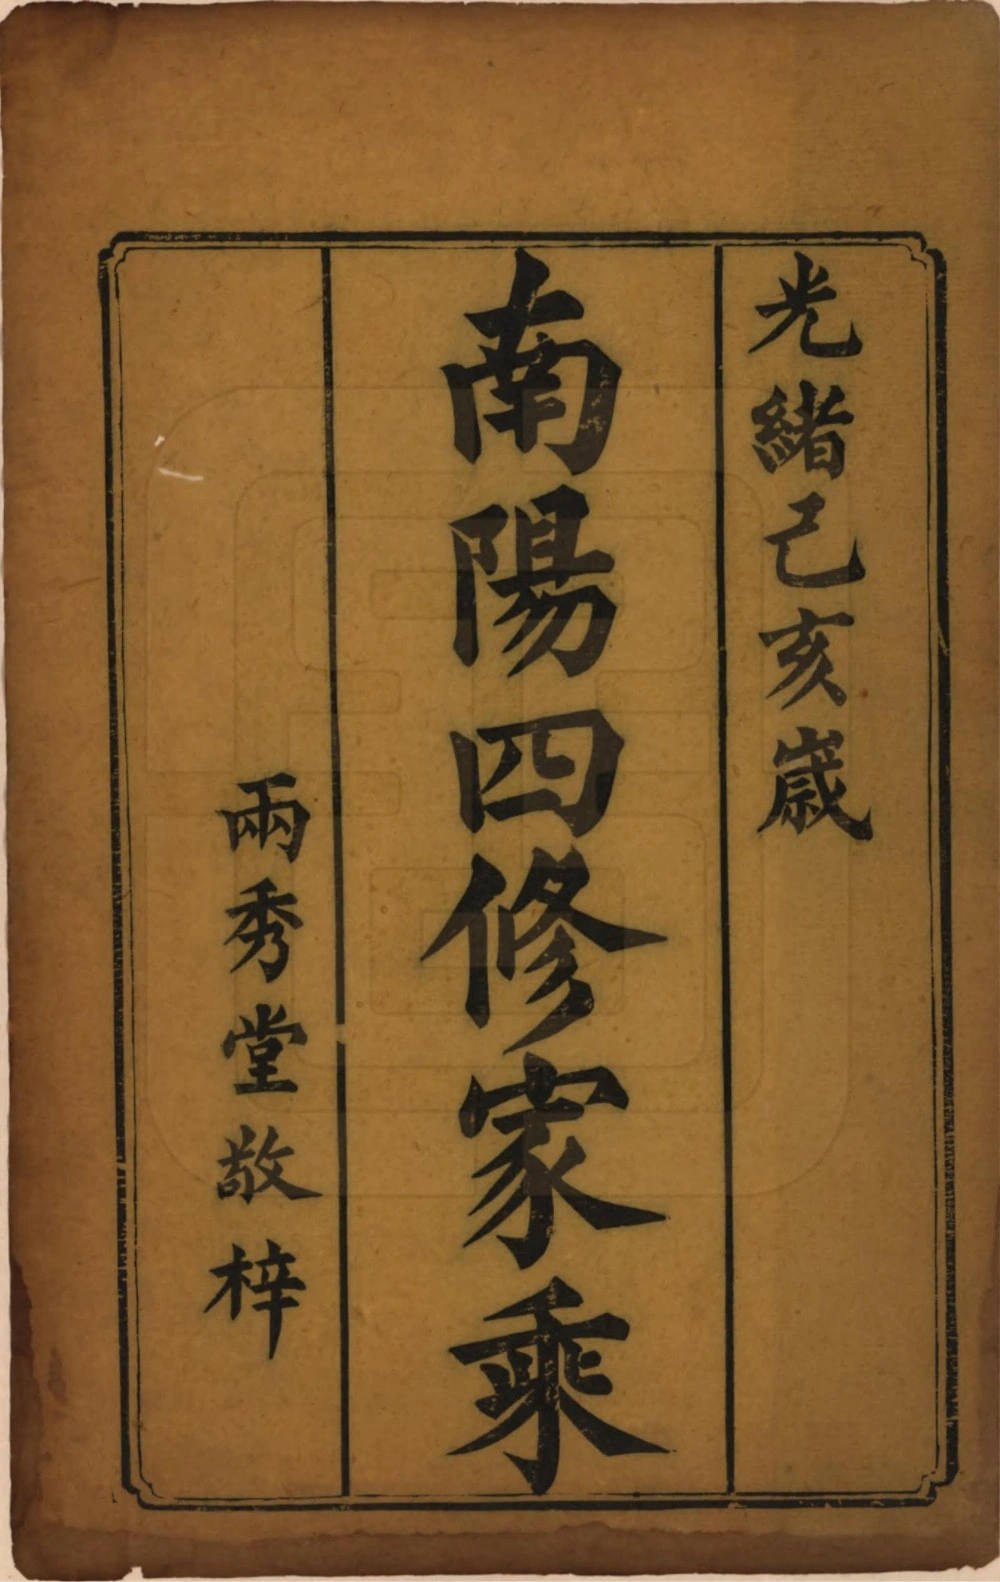 光緒己亥歲
南陽四修家乘
兩秀堂敬梓